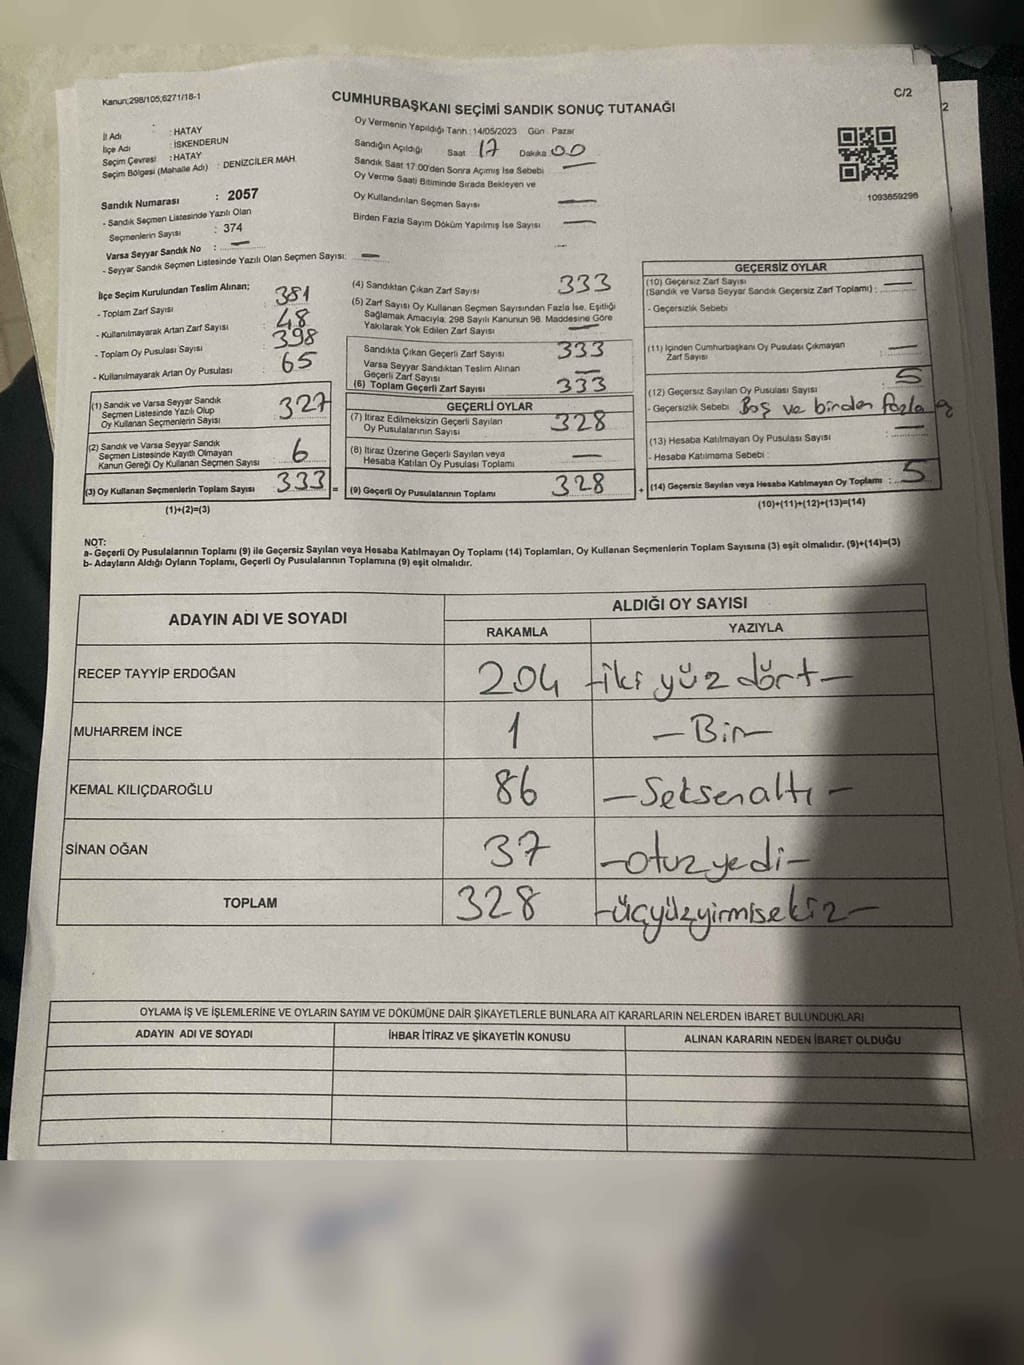 Kanun;298/105,6271/18-1
C/2
2
CUMHURBAŞKANI SEÇİMİ SANDIK SONUÇ TUTANAĞI
İl Adı : HATAY
İlçe Adı : İSKENDERUN
Seçim Çevresi : HATAY
Seçim Bölgesi (Mahalle Adı) : DENİZCİLER MAH.
Sandık Numarası : 2057
- Sandık Seçmen Listesinde Yazılı Olan
Seçmenlerin Sayısı : 374
Varsa Seyyar Sandık No : —
- Seyyar Sandık Seçmen Listesinde Yazılı Olan Seçmen Sayısı: —
Oy Vermenin Yapıldığı Tarih : 14/05/2023 Gün : Pazar
Sandığın Açıldığı Saat 17 Dakika 00
Sandık Saat 17:00'den Sonra Açımış İse Sebebi —
Oy Verme Saati Bitiminde Sırada Bekleyen ve
Oy Kullandırılan Seçmen Sayısı —
Birden Fazla Sayım Döküm Yapılmış İse Sayısı —
1093659296
İlçe Seçim Kurulundan Teslim Alınan;
- Toplam Zarf Sayısı : 381
- Kullanılmayarak Artan Zarf Sayısı : 48
- Toplam Oy Pusulası Sayısı : 398
- Kullanılmayarak Artan Oy Pusulası : 65
(1) Sandık ve Varsa Seyyar Sandık
Seçmen Listesinde Yazılı Olup
Oy Kullanan Seçmenlerin Sayısı : 327
(2) Sandık ve Varsa Seyyar Sandık
Seçmen Listesinde Kayıtlı Olmayan
Kanun Gereği Oy Kullanan Seçmen Sayısı : 6
(3) Oy Kullanan Seçmenlerin Toplam Sayısı : 333 =
(1)+(2)=(3)
(4) Sandıktan Çıkan Zarf Sayısı 333
(5) Zarf Sayısı Oy Kullanan Seçmen Sayısından Fazla İse, Eşitliği
Sağlamak Amacıyla; 298 Sayılı Kanunun 98. Maddesine Göre
Yakılarak Yok Edilen Zarf Sayısı —
Sandıkta Çıkan Geçerli Zarf Sayısı 333
Varsa Seyyar Sandıktan Teslim Alınan
Geçerli Zarf Sayısı —
(6) Toplam Geçerli Zarf Sayısı 333
GEÇERLİ OYLAR
(7) İtiraz Edilmeksizin Geçerli Sayılan
Oy Pusulalarının Sayısı 328
(8) İtiraz Üzerine Geçerli Sayılan veya
Hesaba Katılan Oy Pusulası Toplamı —
(9) Geçerli Oy Pusulalarının Toplamı 328 +
GEÇERSİZ OYLAR
(10) Geçersiz Zarf Sayısı
(Sandık ve Varsa Seyyar Sandık Geçersiz Zarf Toplamı) : —
- Geçersizlik Sebebi
(11) İçinden Cumhurbaşkanı Oy Pusulası Çıkmayan
Zarf Sayısı : —
(12) Geçersiz Sayılan Oy Pusulası Sayısı : 5
- Geçersizlik Sebebi Boş ve birden fazla
(13) Hesaba Katılmayan Oy Pusulası Sayısı : —
- Hesaba Katılmama Sebebi :
(14) Geçersiz Sayılan veya Hesaba Katılmayan Oy Toplamı : 5
(10)+(11)+(12)+(13)=(14)
NOT:
a- Geçerli Oy Pusulalarının Toplamı (9) ile Geçersiz Sayılan veya Hesaba Katılmayan Oy Toplamı (14) Toplamları, Oy Kullanan Seçmenlerin Toplam Sayısına (3) eşit olmalıdır. (9)+(14)=(3)
b- Adayların Aldığı Oyların Toplamı, Geçerli Oy Pusulalarının Toplamına (9) eşit olmalıdır.
ADAYIN ADI VE SOYADI ALDIĞI OY SAYISI
RAKAMLA YAZIYLA
RECEP TAYYİP ERDOĞAN 204 -iki yüz dört-
MUHARREM İNCE 1 -Bir-
KEMAL KILIÇDAROĞLU 86 -Seksenaltı-
SİNAN OĞAN 37 -otuzyedi-
TOPLAM 328 -üçyüzyirmisekiz-
OYLAMA İŞ VE İŞLEMLERİNE VE OYLARIN SAYIM VE DÖKÜMÜNE DAİR ŞİKAYETLERLE BUNLARA AİT KARARLARIN NELERDEN İBARET BULUNDUKLARI
ADAYIN ADI VE SOYADI İHBAR İTİRAZ VE ŞİKAYETİN KONUSU ALINAN KARARIN NEDEN İBARET OLDUĞU